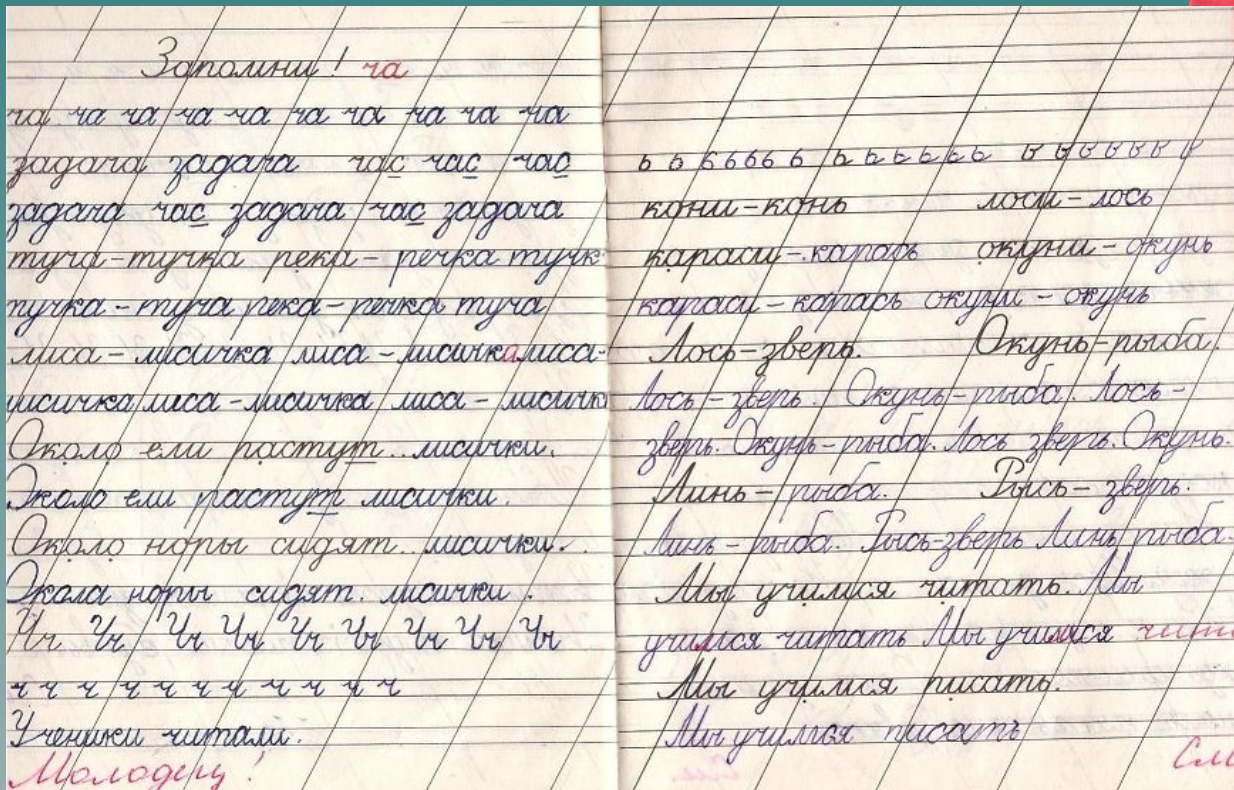 Запомни! ча
ча ча ча ча ча ча ча ча ча ча
задача задача час час час
задача час задача час задача
туча-тучка река-речка тучк
тучка-туча река-речка туча
лиса-лисичка лиса-лисичка лиса-
лисичка лиса-лисичка лиса-лисичк
Около ели растут лисички.
Около ели растут лисички.
Около норы сидят лисички.
Окола норы сидят. лисички.
Чч Чч Чч Чч Чч Чч Чч Чч Чч
ч ч ч ч ч ч ч ч ч ч ч ч
Ученики читали.
Молодец!
ь ь ь ь ь ь ь ь ь ь ь ь ь ь ь ь ь ь ь ь
кони-конь лоси-лось
караси-карась окуни-окунь
караси-карась окуни-окунь
Лось-зверь. Окунь-рыба.
Лось-зверь. Окунь-рыба. Лось-
зверь. Окунь-рыба. Лось зверь. Окунь.
Линь-рыба. Рысь-зверь.
Линь-рыба. Рысь-зверь Линь рыба.
Мы учимся читать. Мы
учимся читать Мы учимся чита
Мы учимся писать.
Мы учимся писать
См